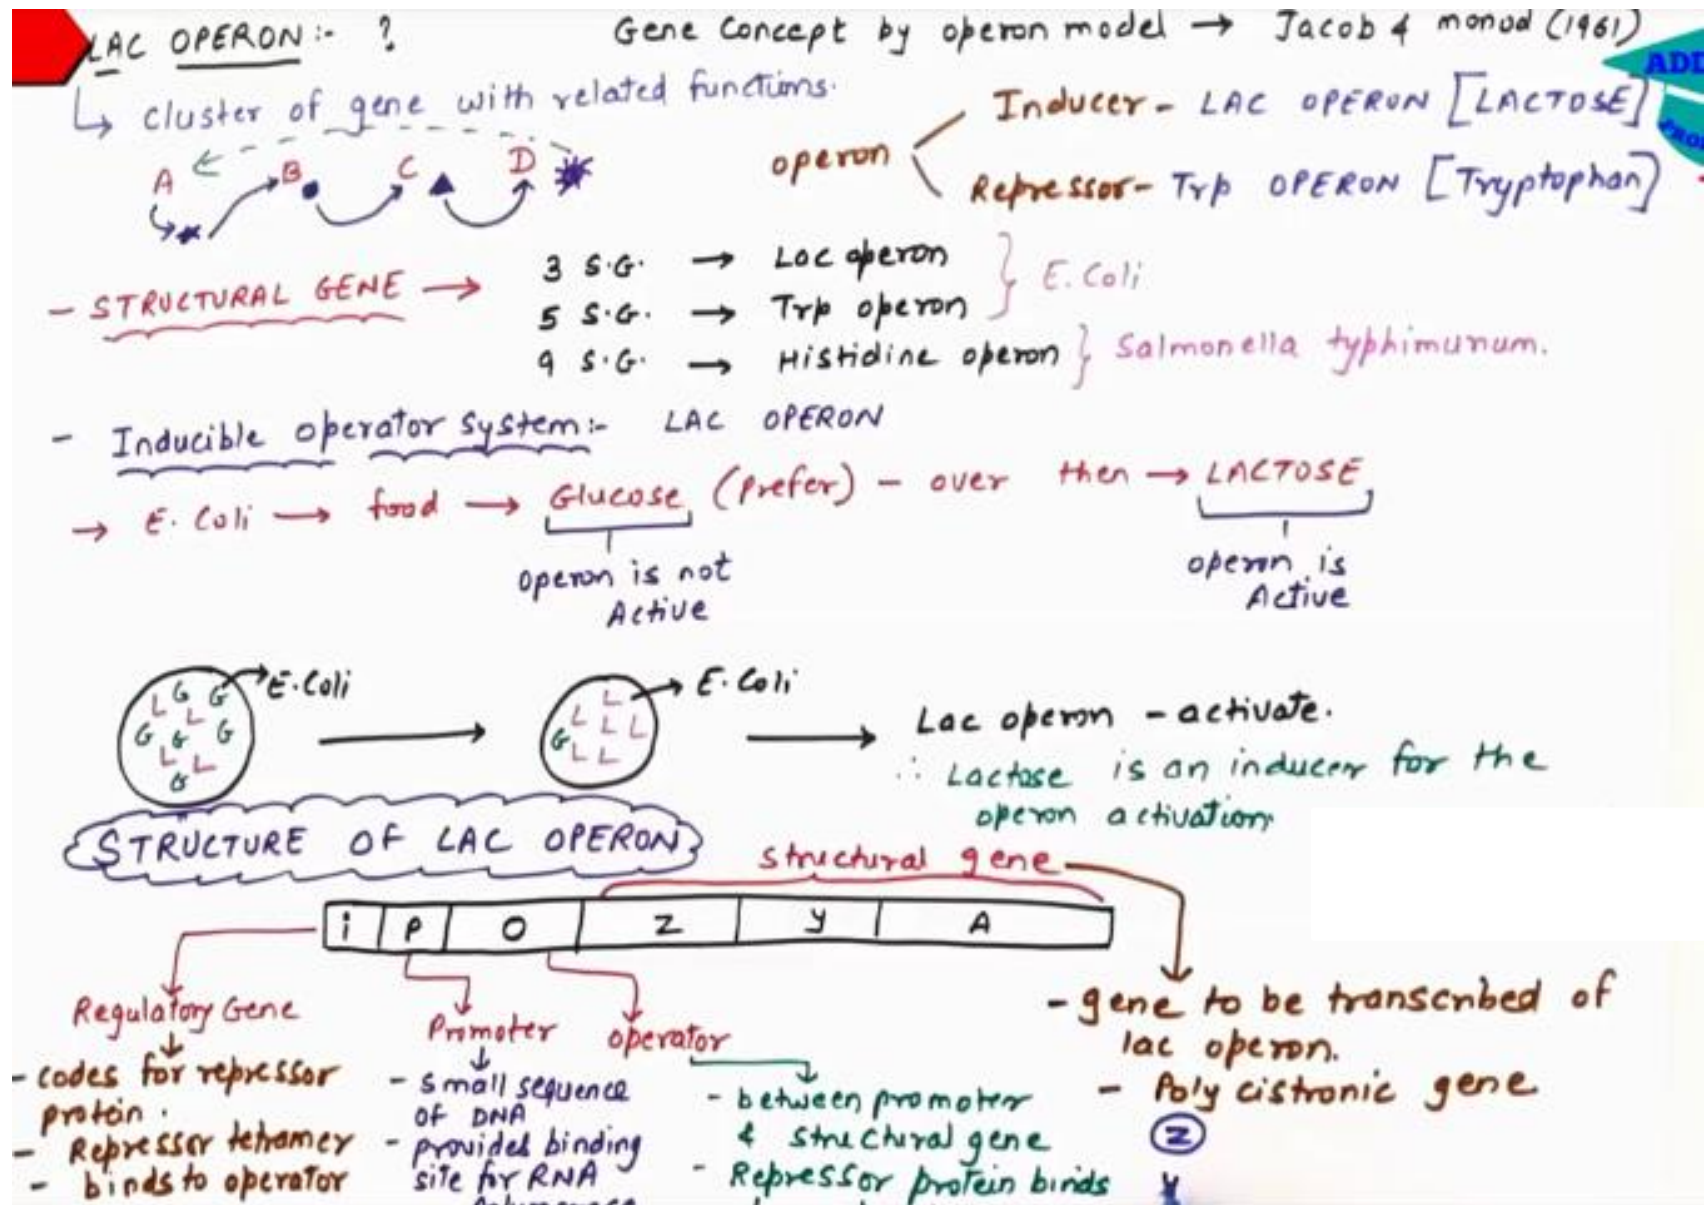 LAC OPERON :- ? Gene Concept by operon model → Jacob & monod (1961)
ADD
↳ cluster of gene with related functions.
Inducer - LAC OPERON [LACTOSE]
operon
Repressor - Trp OPERON [Tryptophan]
A B C D
3 S.G. → Lac operon
- STRUCTURAL GENE → 5 S.G. → Trp operon } E.Coli
9 S.G. → Histidine operon } Salmonella typhimunum.
- Inducible operator system :- LAC OPERON
→ E. Coli → food → Glucose (prefer) - over then → LACTOSE
operon is not Active
operon is Active
E.Coli
L G G
L
G G G
L L
G
E. Coli
L
L L L
G L L
Lac operon - activate.
∴ Lactose is an inducer for the
operon activation
STRUCTURE OF LAC OPERON
structural gene
i P O Z y A
Regulatory Gene
- codes for repressor
protein.
- Repressor tetramer
- binds to operator
Promoter
- small sequence
of DNA
- provides binding
site for RNA
operator
- between promoter
& structural gene
- Repressor protein binds
- gene to be transcribed of
lac operon.
- Poly cistronic gene
Z
Y